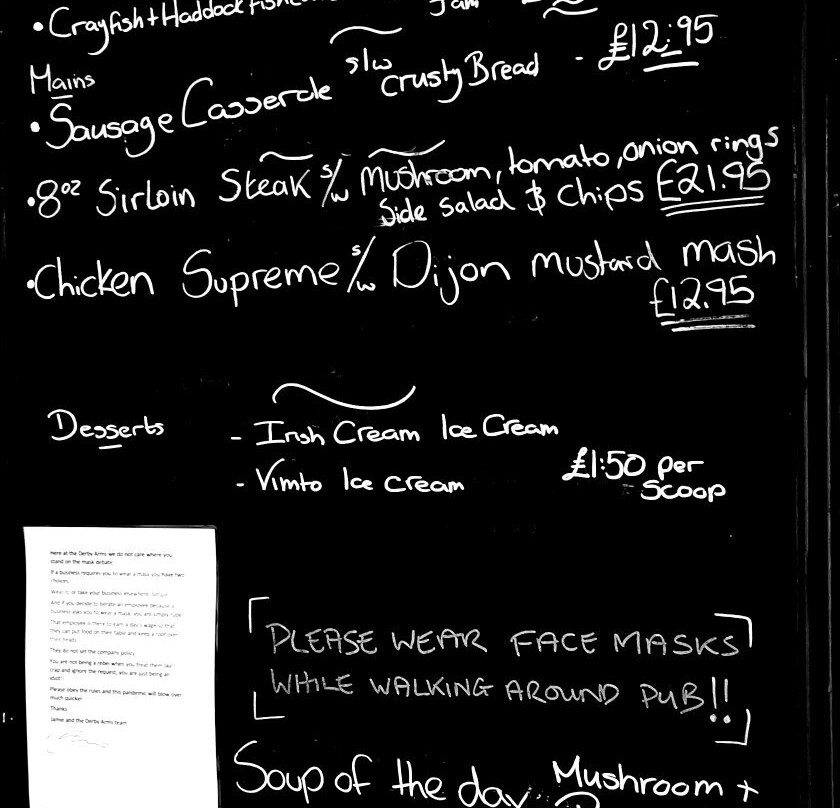 • Crayfish + Haddock
Jam
Mains
• Sausage Casserole s/w Crusty Bread - £12:95
• 8oz Sirloin Steak s/w Mushroom, tomato, onion rings
Side Salad & Chips £21.95
• Chicken Supreme s/w Dijon mustard mash
£12.95
Desserts
- Irish Cream Ice Cream
- Vimto Ice cream
£1:50 per
Scoop
Here at the Derby Arms we do not care where you
stand on the mask debate.
If a business requires you to wear a mask you have two
choices,
Wear it, or take your business elsewhere.
And if you decide to berate an employee because a
business asks you to wear a mask, you are simply rude.
That employee is there to earn a day's wage so that
they can put food on their table and keep a roof over
their heads.
They do not set the company policy.
You are not being a rebel when you treat them like
crap and ignore the request, you are just being an
idiot!
Please obey the rules and this pandemic will blow over
much quicker.
Thanks
Jamie and the Derby Arms team
PLEASE WEAR FACE MASKS
WHILE WALKING AROUND PUB!!
Soup of the day Mushroom +